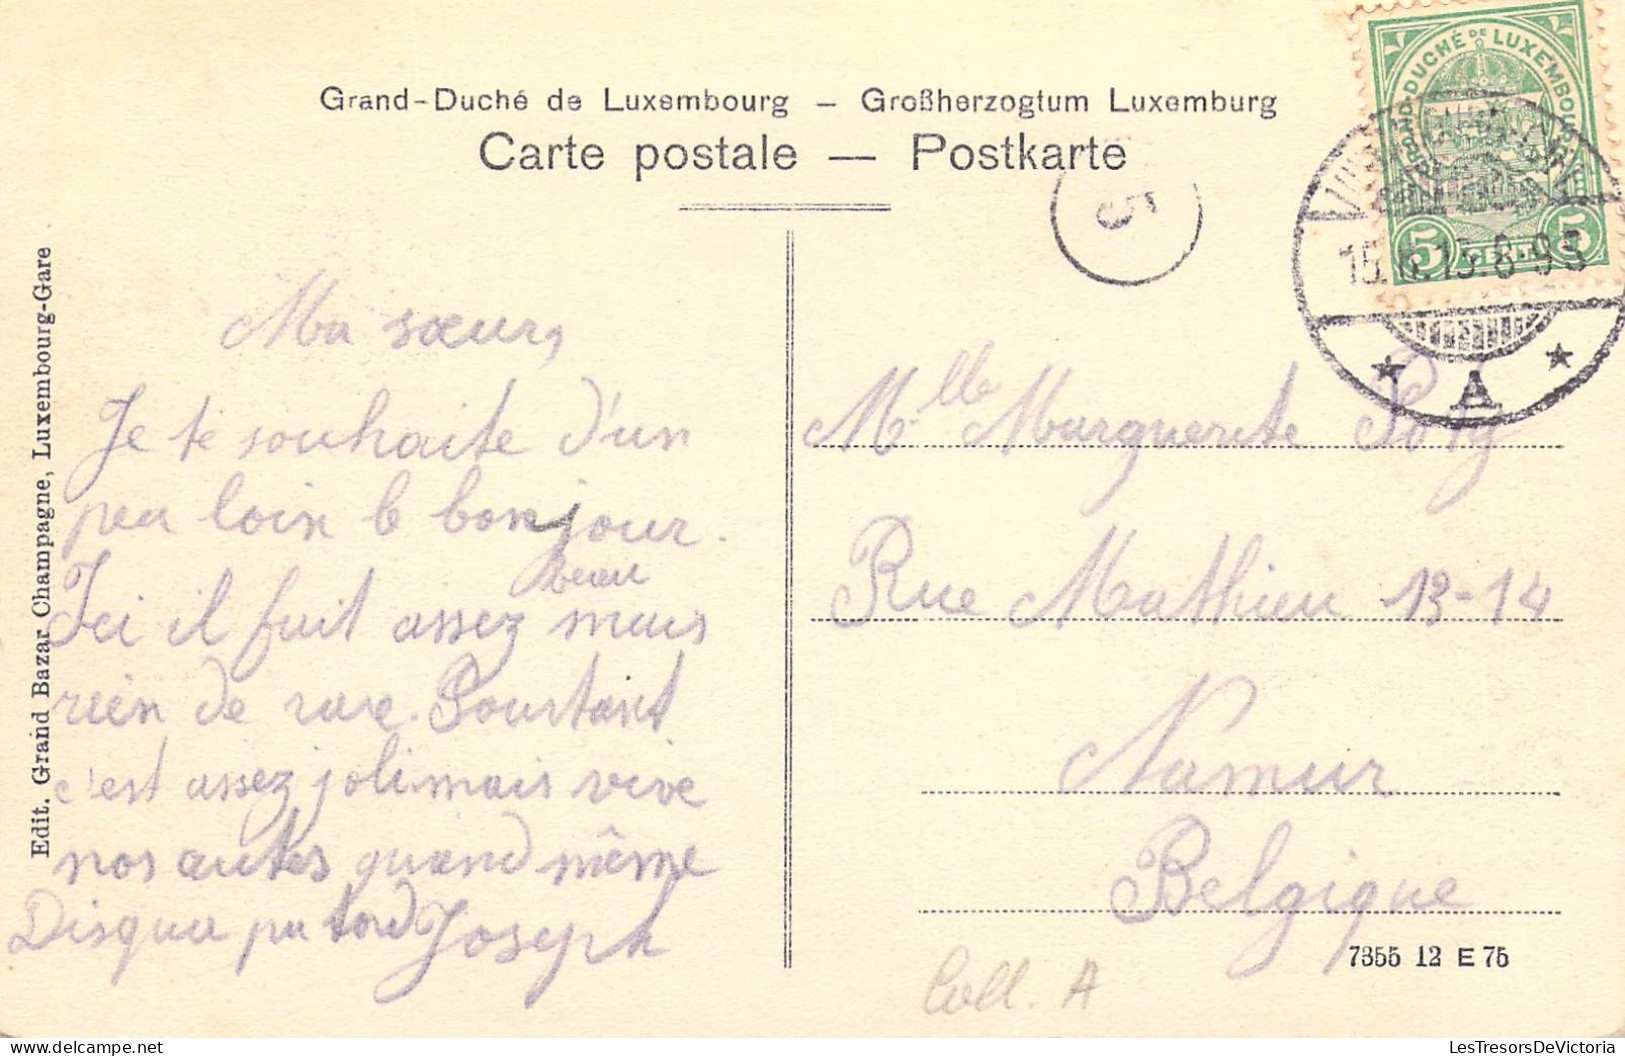 Grand-Duché de Luxembourg — Großherzogtum Luxemburg
Carte postale — Postkarte
GRAND DUCHÉ DE LUXEMBOURG
5 5
5
A
Edit. Grand Bazar Champagne, Luxembourg-Gare
Ma sœur,
Je te souhaite d'un
peu loin le bonjour.
Ici il fait assez beau mais
rien de rare. Pourtant
c'est assez joli mais vive
nos autes quand même
Joseph
Mlle Marguerite
Rue Mathieu 13-14
Namur
Belgique
7355 12 E 75
Coll. A
LesTresorsDeVictoria